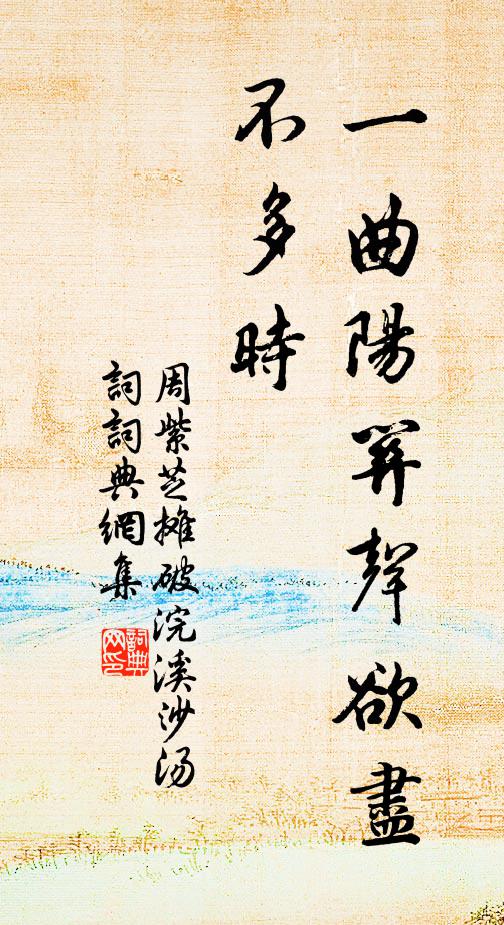 一曲陽關聲欲盡
不多時
周紫芝攤破浣溪沙汤
詞詞典網集
詞典
网印